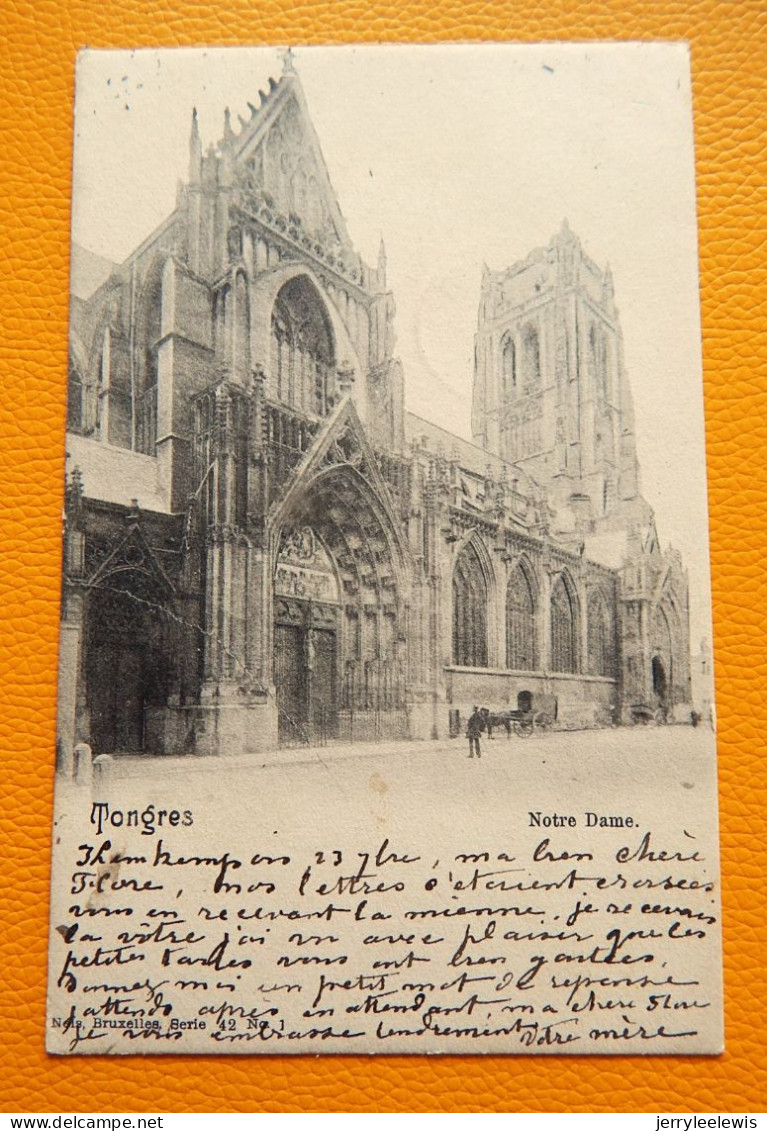 Tongres
Notre Dame.
23 7bre, ma bien chère
Flore, nos lettres s'étaient croisées
vous en recevant la mienne, je recevais
la vôtre j'ai vu avec plaisir que les
petites tartes vous ont bien goutées,
Donnez moi un petit mot de réponse
j'attends après, en attendant, ma chère Flore
Nels, Bruxelles, Serie 42 No. 1
je vous embrasse tendrement votre mère
jerryleelewis